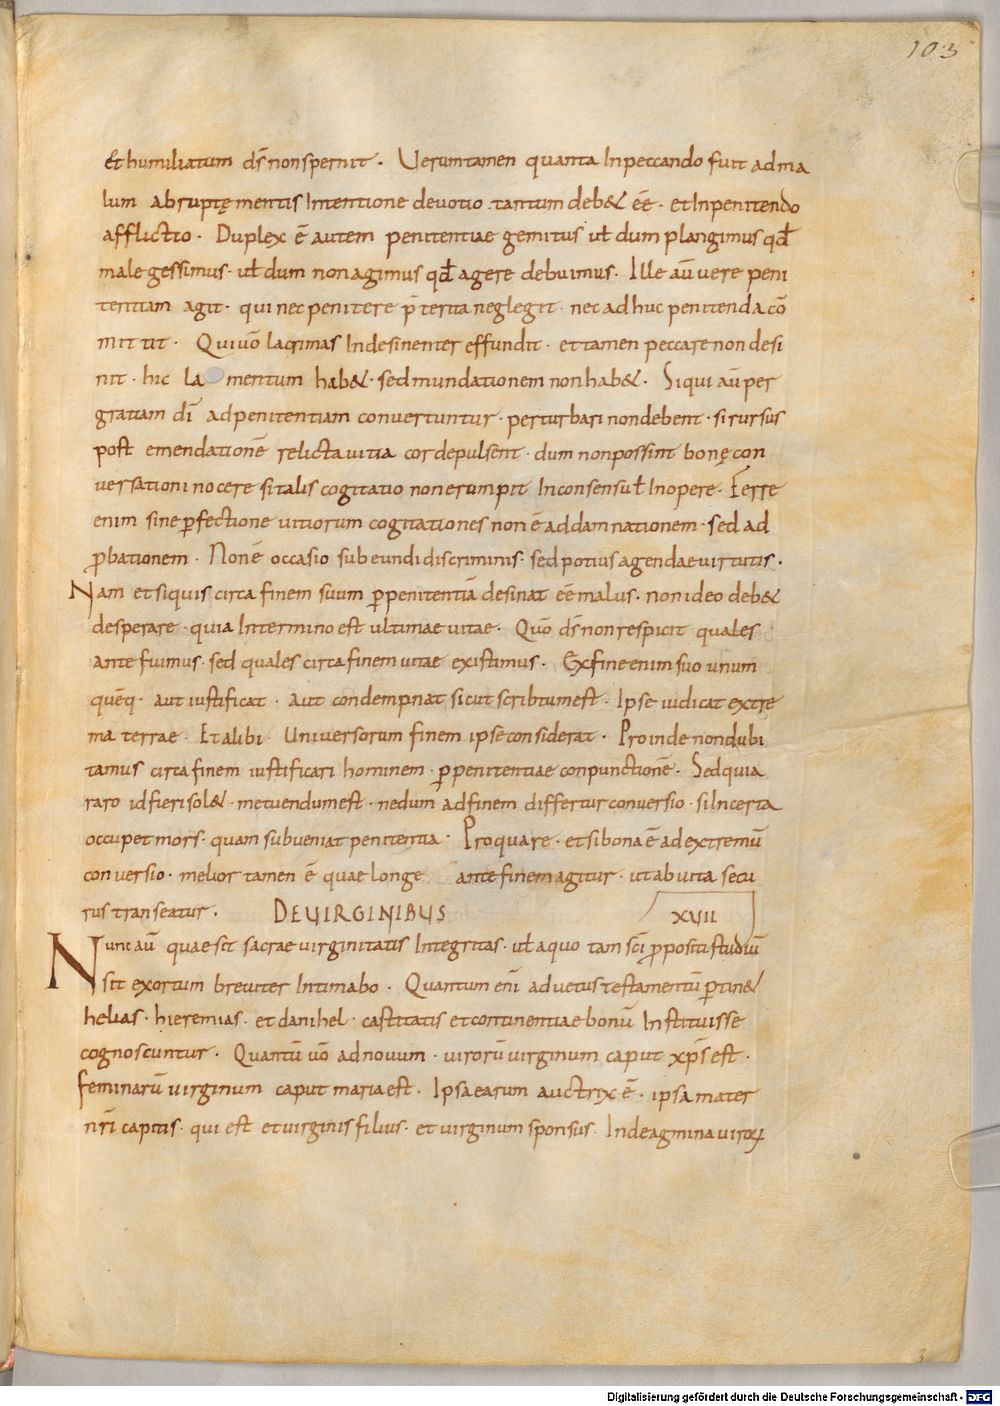 103
et humiliatum ds̄ non spernit . Uerumtamen quanta in peccando fuit ad ma
lum abruptę mentis intentione deuotio . tantum deb& eē · et in penitendo
afflictio . Duplex ē autem penitentiae gemitus uƚ dum plangimus qđ
male gessimus · uƚ dum non agimus qđ agere debuimus . Ille aū uere peni
tentiam agit · qui nec penitere p̄terita neglegit · nec adhuc penitenda cō
mittit . Qui uō lacrimas indesinenter effundit · et tamen peccare non desi
nit · hic lamentum hab& · sed mundationem non hab& . Si qui aū per
gratiam dī ad penitentiam conuertuntur · perturbari non debent · si rursus
post emendationē relicta uitia cor depulsent · dum non possint bonę con
uersationi nocere si talis cogitatio non erumpit in consensu uƚ in opere . Ferre
enim sine ꝑfectione uitiorum cogitationes non ē ad damnationem · sed ad
ꝓbationem . Non ē occasio subeundi discriminis · sed potius agendae uirtutis .
Nam et si quis circa finem suum ꝑ penitentiā desinat eē malus · non ideo deb&
desperare · quia in termino est ultimae uitae . Quō ds̄ non respicit quales
ante fuimus · sed quales circa finem uitae existimus . Ex fine enim suo unum
quēq· aut iustificat . aut condempnat sicut scribtum est . Ipse iudicat extre
ma terrae . Et alibi . Uniuersorum finem ipse considerat . Proinde non dubi
tamus circa finem iustificari hominem · ꝑ penitentiae conpunctionē . Sed quia
raro id fieri sol& · metuendum est · ne dum ad finem differtur conuersio · si incerta
occupet mors · quam subueniat penitentia . Pro qua re · et si bona ē ad extremū
conuersio · melior tamen ē quae longe ante finem agitur · ut ab uita secu
rus transeatur . DE UIRGINIBUS XVII
Nunc aū quae sit sacrae uirginitatis integritas · uƚ a quo tam scī ꝓpositi studiū
sit exortum breuiter intimabo . Quantum enī ad uetus testamentū ꝑtin&
helias · hieremias · et danihel · castitatis et continentiae bonū instituisse
cognoscuntur . Quantū uō ad nouum · uirorū uirginum caput xp̄s est .
feminarū uirginum caput maria est . Ipsa earum auctrix ē . ipsa mater
nrī capitis · qui est et uirginis filius · et uirginum sponsus . Inde agmina uiroꝝ